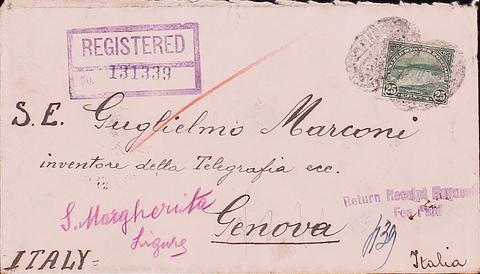 REGISTERED
No. 131339
25 25
S.E. Guglielmo Marconi
inventore della Telegrafia ecc.
S. Margherita
Ligure
Genova
Return Receipt Requested
Fee Paid
139
ITALY=
Italia